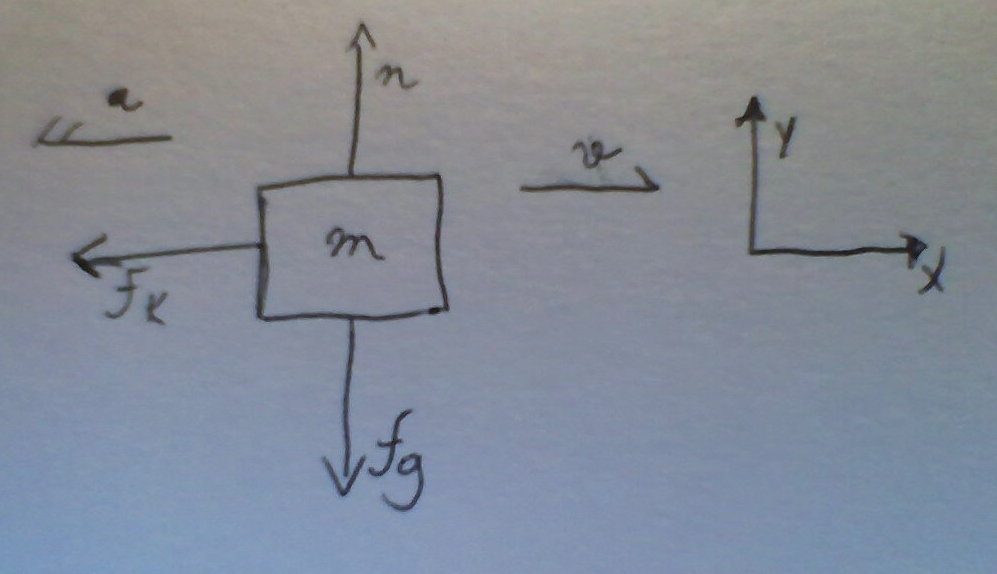 a
n
v
Y
m
X
fk
fg